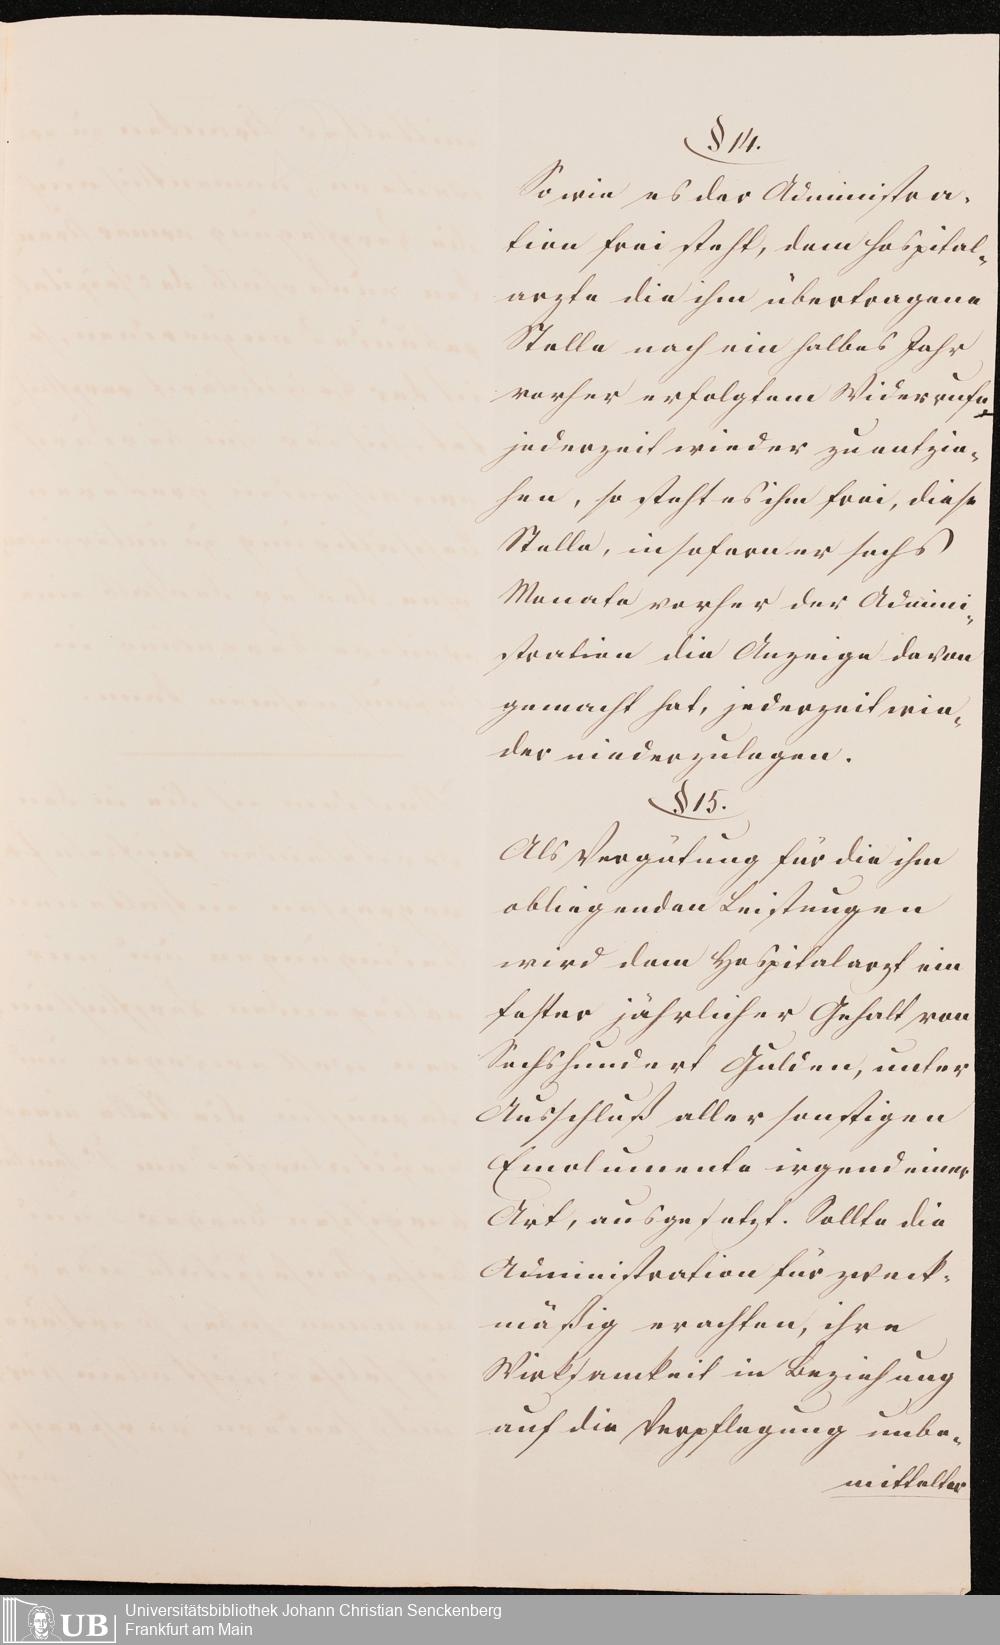 § 14.
Sowie es der Administra-
tion frei steht, dem Hospital-
arzte die ihm übertragene
Stelle nach ein halbes Jahr
vorher erfolgtem Widerrufe
jederzeit wieder zu entzie-
hen, so steht es ihm frei, diese
Stelle, insofern er sechs
Monate vorher der Admini-
stration die Anzeige davon
gemacht hat, jederzeit wie-
der niederzulegen.
§ 15.
Als Vergütung für die ihm
obliegenden Leistungen
wird dem Hospitalarzt ein
fester jährlicher Gehalt von
Sechshundert Gulden, unter
Ausschluß aller sonstigen
Emolumente irgend einer
Art, ausgesetzt. Sollte die
Administration für zweck-
mäßig erachten, ihre
Wirksamkeit in Beziehung
auf die Verpflegung unbe-
mittelter
UB
Universitätsbibliothek Johann Christian Senckenberg
Frankfurt am Main